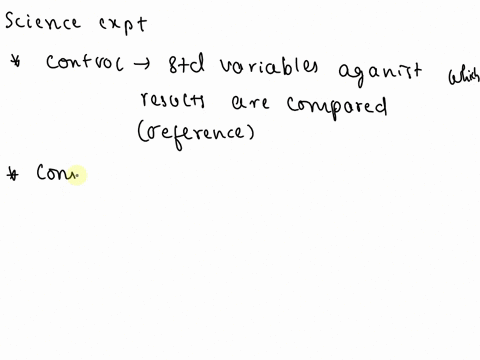 Science expt
* control → std variables aganist which
results are compared
(reference)
* Con